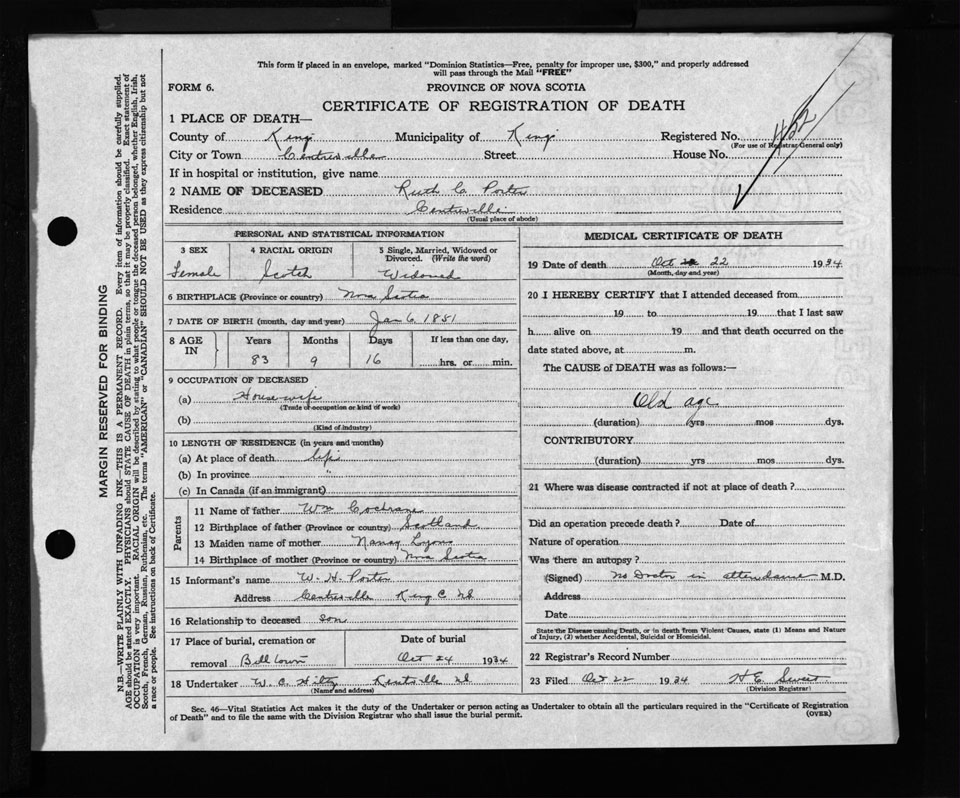 This form if placed in an envelope, marked "Dominion Statistics—Free, penalty for improper use, $300," and properly addressed
will pass through the Mail "FREE"
FORM 6. PROVINCE OF NOVA SCOTIA
CERTIFICATE OF REGISTRATION OF DEATH
1 PLACE OF DEATH—
County of Kings Municipality of Kings Registered No. 422
(For use of Registrar General only)
City or Town Centreville Street House No.
If in hospital or institution, give name
2 NAME OF DECEASED Ruth C. Porter
Residence Centreville
(Usual place of abode)
PERSONAL AND STATISTICAL INFORMATION
3 SEX 4 RACIAL ORIGIN 5 Single, Married, Widowed or
Divorced. (Write the word)
Female Scotch Widowed
6 BIRTHPLACE (Province or country) Nova Scotia
7 DATE OF BIRTH (month, day and year) Jan 6, 1851
8 AGE IN Years Months Days If less than one day,
83 9 16 hrs. or min.
9 OCCUPATION OF DECEASED
(a) Housewife
(Trade or occupation or kind of work)
(b)
(Kind of industry)
10 LENGTH OF RESIDENCE (in years and months)
(a) At place of death life
(b) In province "
(c) In Canada (if an immigrant)
Parents
11 Name of father Wm Cochrane
12 Birthplace of father (Province or country) Scotland
13 Maiden name of mother Nancy Lyons
14 Birthplace of mother (Province or country) Nova Scotia
15 Informant's name W. H. Porter
Address Centreville Kings C NS
16 Relationship to deceased Son
17 Place of burial, cremation or Date of burial
removal Bill Town Oct 24 1934
18 Undertaker W. C. Hiltz Kentville NS
(Name and address)
MEDICAL CERTIFICATE OF DEATH
19 Date of death Oct 22 1934
(Month, day and year)
20 I HEREBY CERTIFY that I attended deceased from
19 to 19 that I last saw
h alive on 19 and that death occurred on the
date stated above, at m.
The CAUSE of DEATH was as follows:—
Old age
(duration) yrs mos dys.
CONTRIBUTORY
(duration) yrs mos dys.
21 Where was disease contracted if not at place of death?
Did an operation precede death? Date of
Nature of operation
Was there an autopsy?
(Signed) No Doctor in attendance M.D.
Address
Date
State the Disease causing Death, or in death from Violent Causes, state (1) Means and Nature
of Injury, (2) whether Accidental, Suicidal or Homicidal.
22 Registrar's Record Number
23 Filed Oct 22 1934 H E. Sweet
(Division Registrar)
Sec. 46—Vital Statistics Act makes it the duty of the Undertaker or person acting as Undertaker to obtain all the particulars required in the "Certificate of Registration
of Death" and to file the same with the Division Registrar who shall issue the burial permit. (OVER)
MARGIN RESERVED FOR BINDING
N.B.—WRITE PLAINLY WITH UNFADING INK—THIS IS A PERMANENT RECORD. Every item of information should be carefully supplied.
AGE should be stated EXACTLY. PHYSICIANS should STATE CAUSE OF DEATH in plain terms, so that it may be properly classified. Exact statement of
OCCUPATION is very important. RACIAL ORIGIN will be described by stating to what people or tongue the deceased person belonged, whether English, Irish,
Scotch, French, German, Russian, Ruthenian, etc. The terms "AMERICAN" or "CANADIAN" SHOULD NOT BE USED as they express citizenship but not
a race or people. See instructions on back of Certificate.